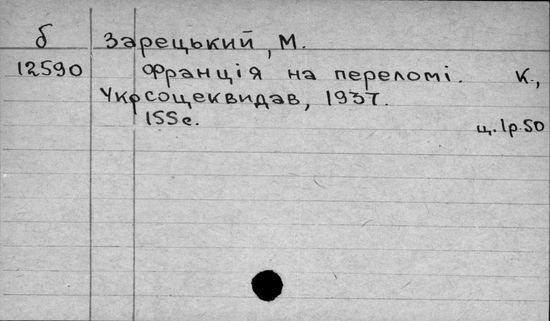 б Зарецький, М.
12590 Франція на переломі. К.,
Укрсоцеквидав, 1937.
155с.
ц. 1р.50